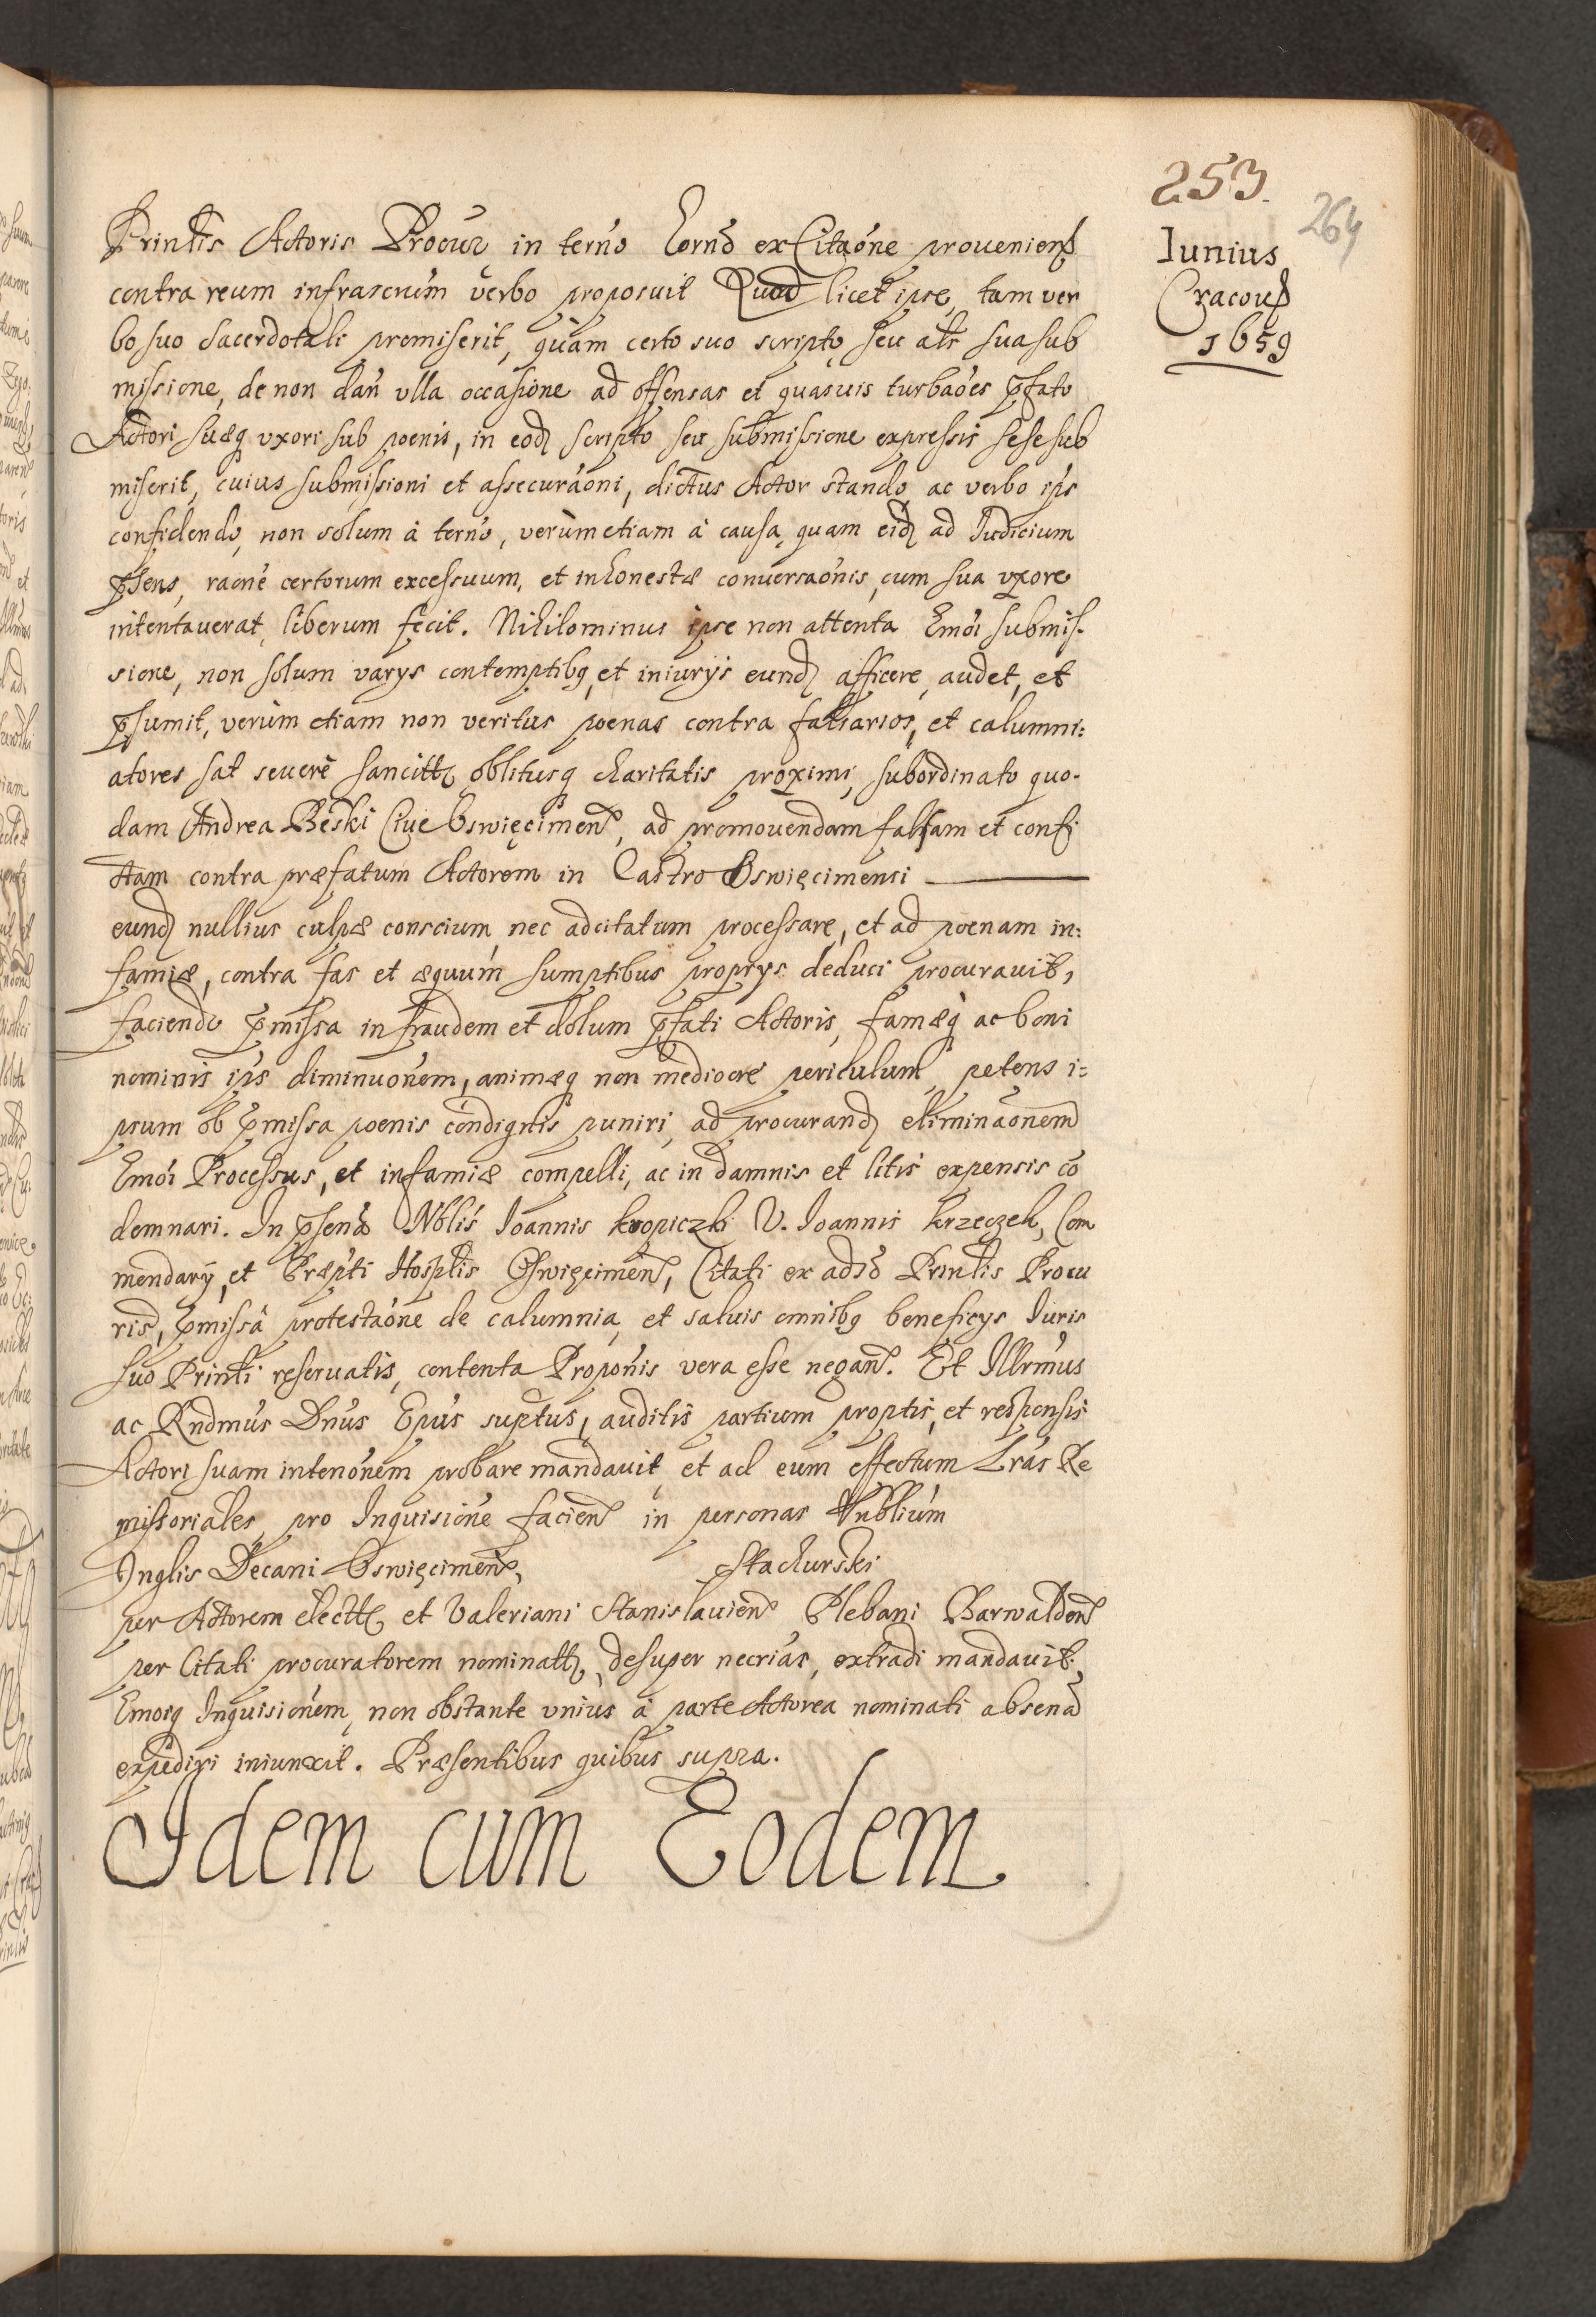 253.
264
Iunius
Cracou
1659
Prinlis Actoris Procur in terno hornō ex Citaōne prouenien
contra reum infrascrum verbo proposuit Quod licet ipse, tam ver
bo suo sacerdotali promiserit, quàm certo suo scripto, seu als sua sub
missione, de non dan̄ vlla occasione ad offensas et quasuis turbaōes p̄fato
Actori suæq vxori sub poenis, in eod scripto seu submissione expressis sese sub
miserit, cuius submissioni et assecuraōni, dictus Actor stando, ac verbo ip̄s
confidendo, non solum à terno, verùm etiam à causa, quam eid ad Iudicium
p̄sens, raōne certorum excessuum, et inhonestæ conuersaōnis, cum sua vxore
intentauerat, liberum fecit. Nihilominus ipse non attenta Emōi submis-
sione, non solum varys contemptibq, et iniurys eund afficere, audet, et
p̄sumit, verùm etiam non veritus poenas contra falsarios, et calumni:
atores sat seuerè sancitt, oblitusq charitatis proximi, subordinato quo-
dam Andrea Beski Ciue Oswięcimen, ad promouendam falsam et confi
ctam contra præfatum Actorem in Castro Oswięcimensi
eund nullius culpæ conscium, nec adcitatum processare, et ad poenam in:
famiæ, contra fas et æquum sumptibus proprys deduci procurauit,
faciendo p̄missa in fraudem et dolum p̄fati Actoris, famæq ac boni
nominis ip̄s diminuōnem, animæq non mediocre periculum, petens i=
psum ob p̄missa poenis condignis puniri, ad procurand eliminaōnem
Emōi Processus, et infamiæ compelli, ac in damnis et litis expensis cō
demnari. In p̄senā Nblis Ioannis kropiczki V. Ioannis krzeczek, Com
mendarÿ, et Præpti Hosplis Oswięcimen, Citati ex adsō Prinlis Procu
ris, p̄missâ protestaōne de calumnia, et saluis omnibq beneficys Iuris
suo Prinli reseruatis, contenta Propōnis vera esse negan. Et Illrmus
ac Rndmus Dnus Epus suptus, auditis partium proptis, et responsis
Actori suam intenōnem probare mandauit, et ad eum effectum Lras Re
missoriales, pro Inquisiōne facien in personas Vnblium
Inglis Decani Oswięcimen, Stachurski
per Actorem electt, et Valeriani Stanislauien Plebani Barwalden
per Citati procuratorem nominatt, desuper necrias, extradi mandauit,
Emōiq Inquisiōnem, non obstante vnius à parte Actorea nominati absenā
expediri iniunxit. Præsentibus quibus supra.
Idem cum Eodem